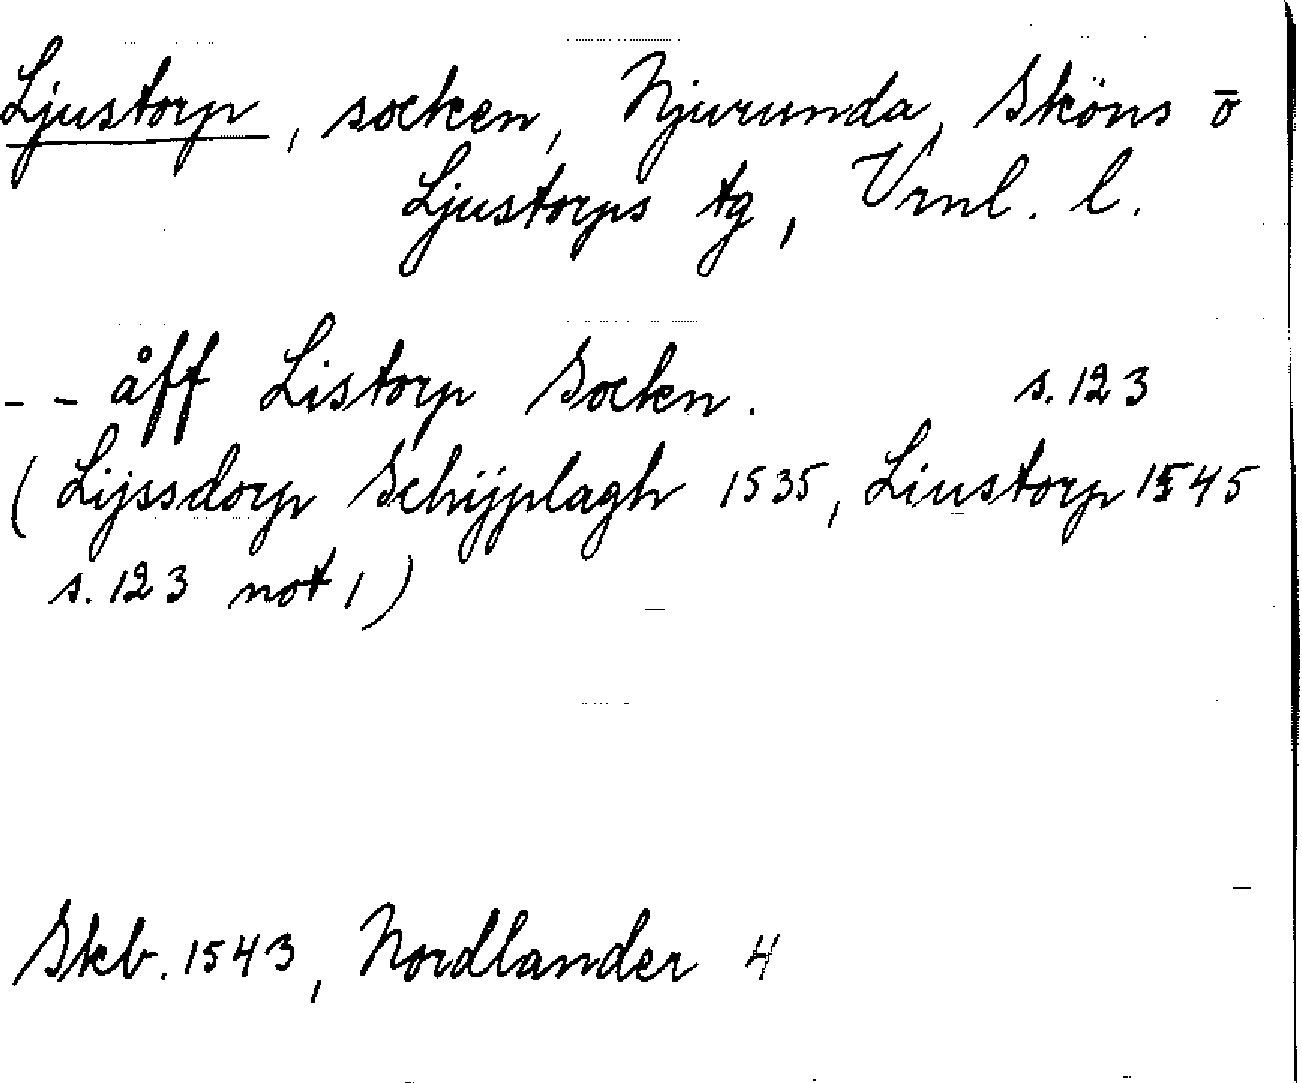 Ljustorp, socken, Njurunda, Sköns o
Ljustorps tg, Vrnl. l.
-- åff Listorp Socken. s. 123
(Lijssdorp Schijplagh 1535, Liustorp 1545
s. 123 not 1)
Skb. 1543, Nordlander 4